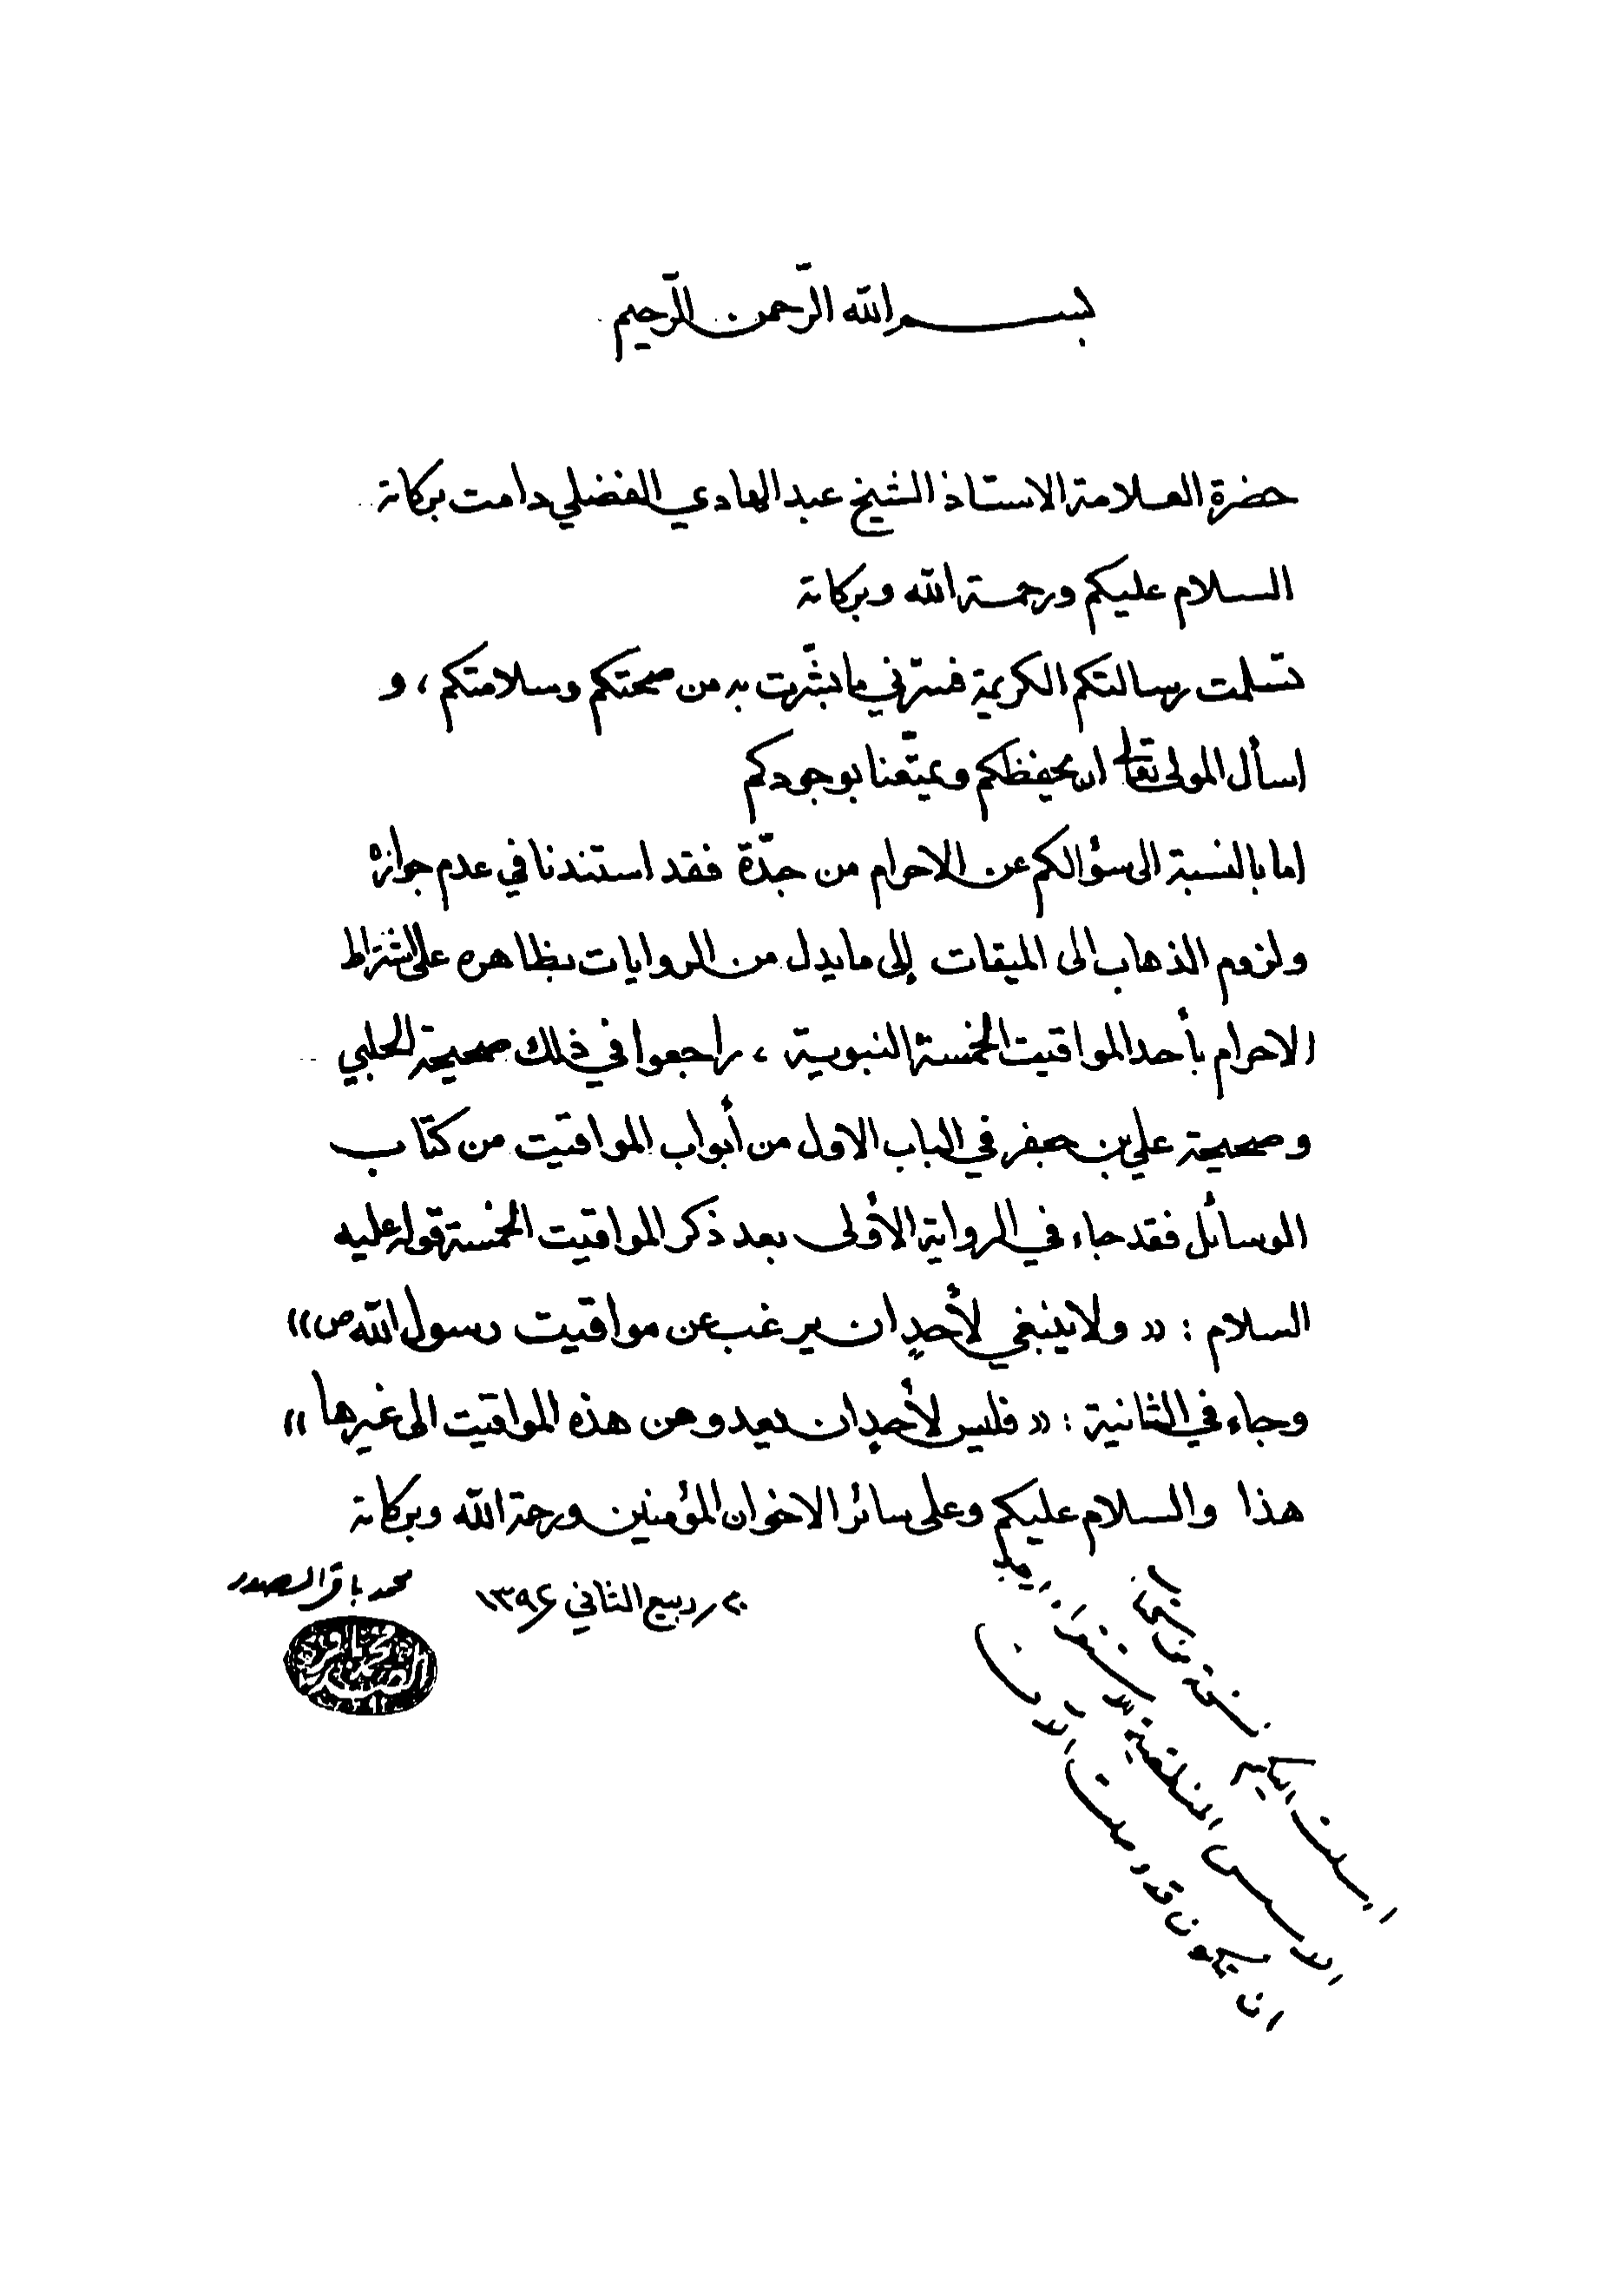 بسم الله الرّحمن الرّحيم
حضرة العلامة الاستاذ الشيخ عبد الهادي الفضلي دامت بركاته
السلام عليكم ورحمة الله وبركاته
تسلمت رسالتكم الكريمة فسرّني ما بشّرت به من صحتكم وسلامتكم ، و
اسأل المولى تعالى ان يحفظكم ويمتّعنا بوجودكم
اما بالنسبة الى سؤالكم عن الاحرام من جدّة فقد استندنا في عدم جوازه
ولزوم الذهاب الى الميقات إلى ما يدل من الروايات بظاهره على اشتراط
الاحرام بأحد المواقيت الخمسة النبوية ، راجعوا في ذلك صحيحة الحلبي
وصحيحة علي بن جعفر في الباب الاول من أبواب المواقيت من كتاب
الوسائل فقد جاء في الرواية الأولى بعد ذكر المواقيت الخمسة قوله عليه
السلام : « ولا ينبغي لأحدٍ ان يرغب عن مواقيت رسول الله ص »
وجاء في الثانية : « فليس لأحدٍ ان يعدو من هذه المواقيت الى غيرها »
هذا والسلام عليكم وعلى سائر الاخوان المؤمنين ورحمة الله وبركاته
٢٠ ربيع الثاني ١٣٩٦
محمد باقر الصدر
محمد باقر الصدر
ارسلت اليكم نسخة من
الاسس المنطقية للاستقراء
ان تكون قد وصلت الآن